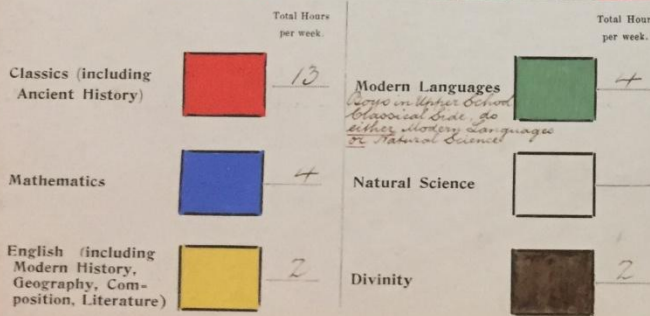 Total Hours
per week.
Classics (including
Ancient History)
13
Mathematics
4
English (including
Modern History,
Geography, Com-
position, Literature)
2
Total Hour
per week.
Modern Languages
4
Boys in Upper School
Classical Side, do
either Modern Languages
or Natural Science
Natural Science
Divinity
2